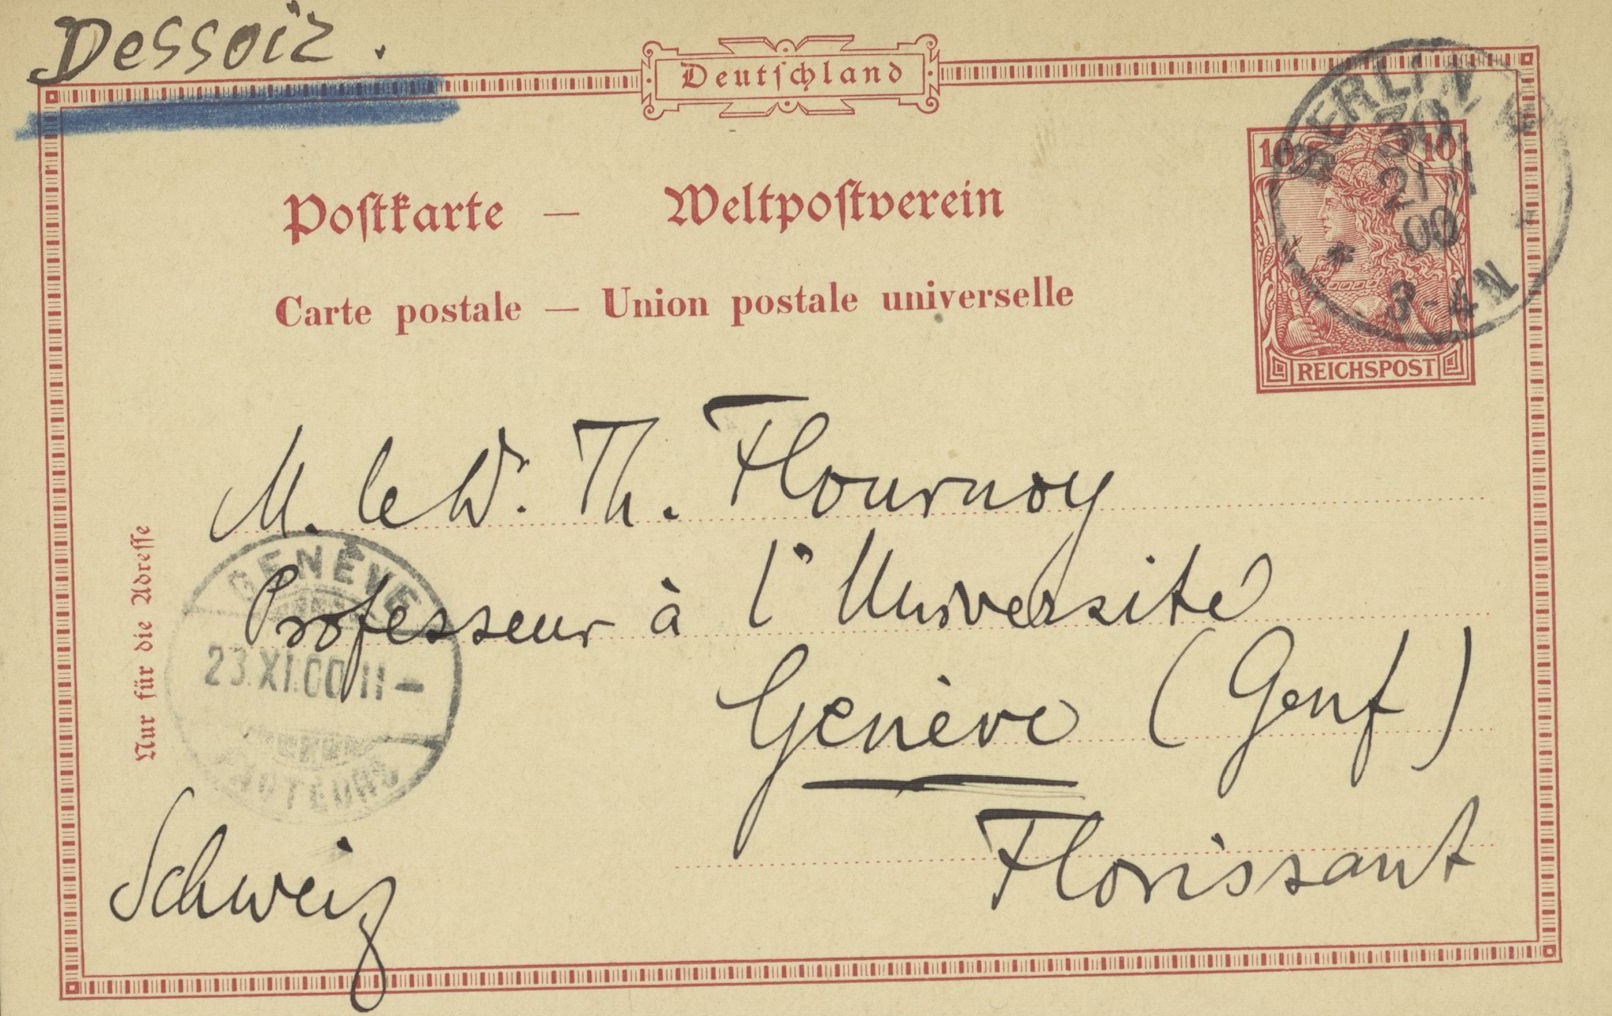 Dessoir.
Deutschland
Postkarte — Weltpostverein
Carte postale — Union postale universelle
10 10
REICHSPOST
BERLIN W
30.
21 11
00
3-4N
M. le Dr. Th. Flournoy
Professeur à l'Université
Genève (Genf)
Florissant
Schweiz
Nur für die Adresse
GENÈVE
23.XI.00 11–
FACTEURS